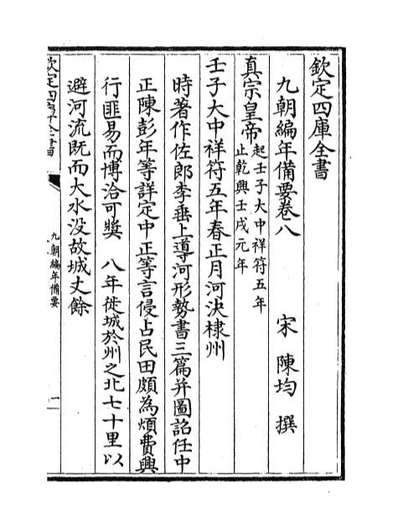 欽定四庫全書
九朝編年備要卷八
宋 陳均 撰
真宗皇帝起壬子大中祥符五年
止乾興壬戌元年
壬子大中祥符五年春正月河決棣州
時著作佐郎李垂上導河形勢書三篇并圖詔任中
正陳彭年等詳定中正等言侵占民田頗為煩費興
行匪易而博洽可獎 八年徙城於州之北七十里以
避河流既而大水没故城丈餘
欽定四庫全書
九朝編年備要
一